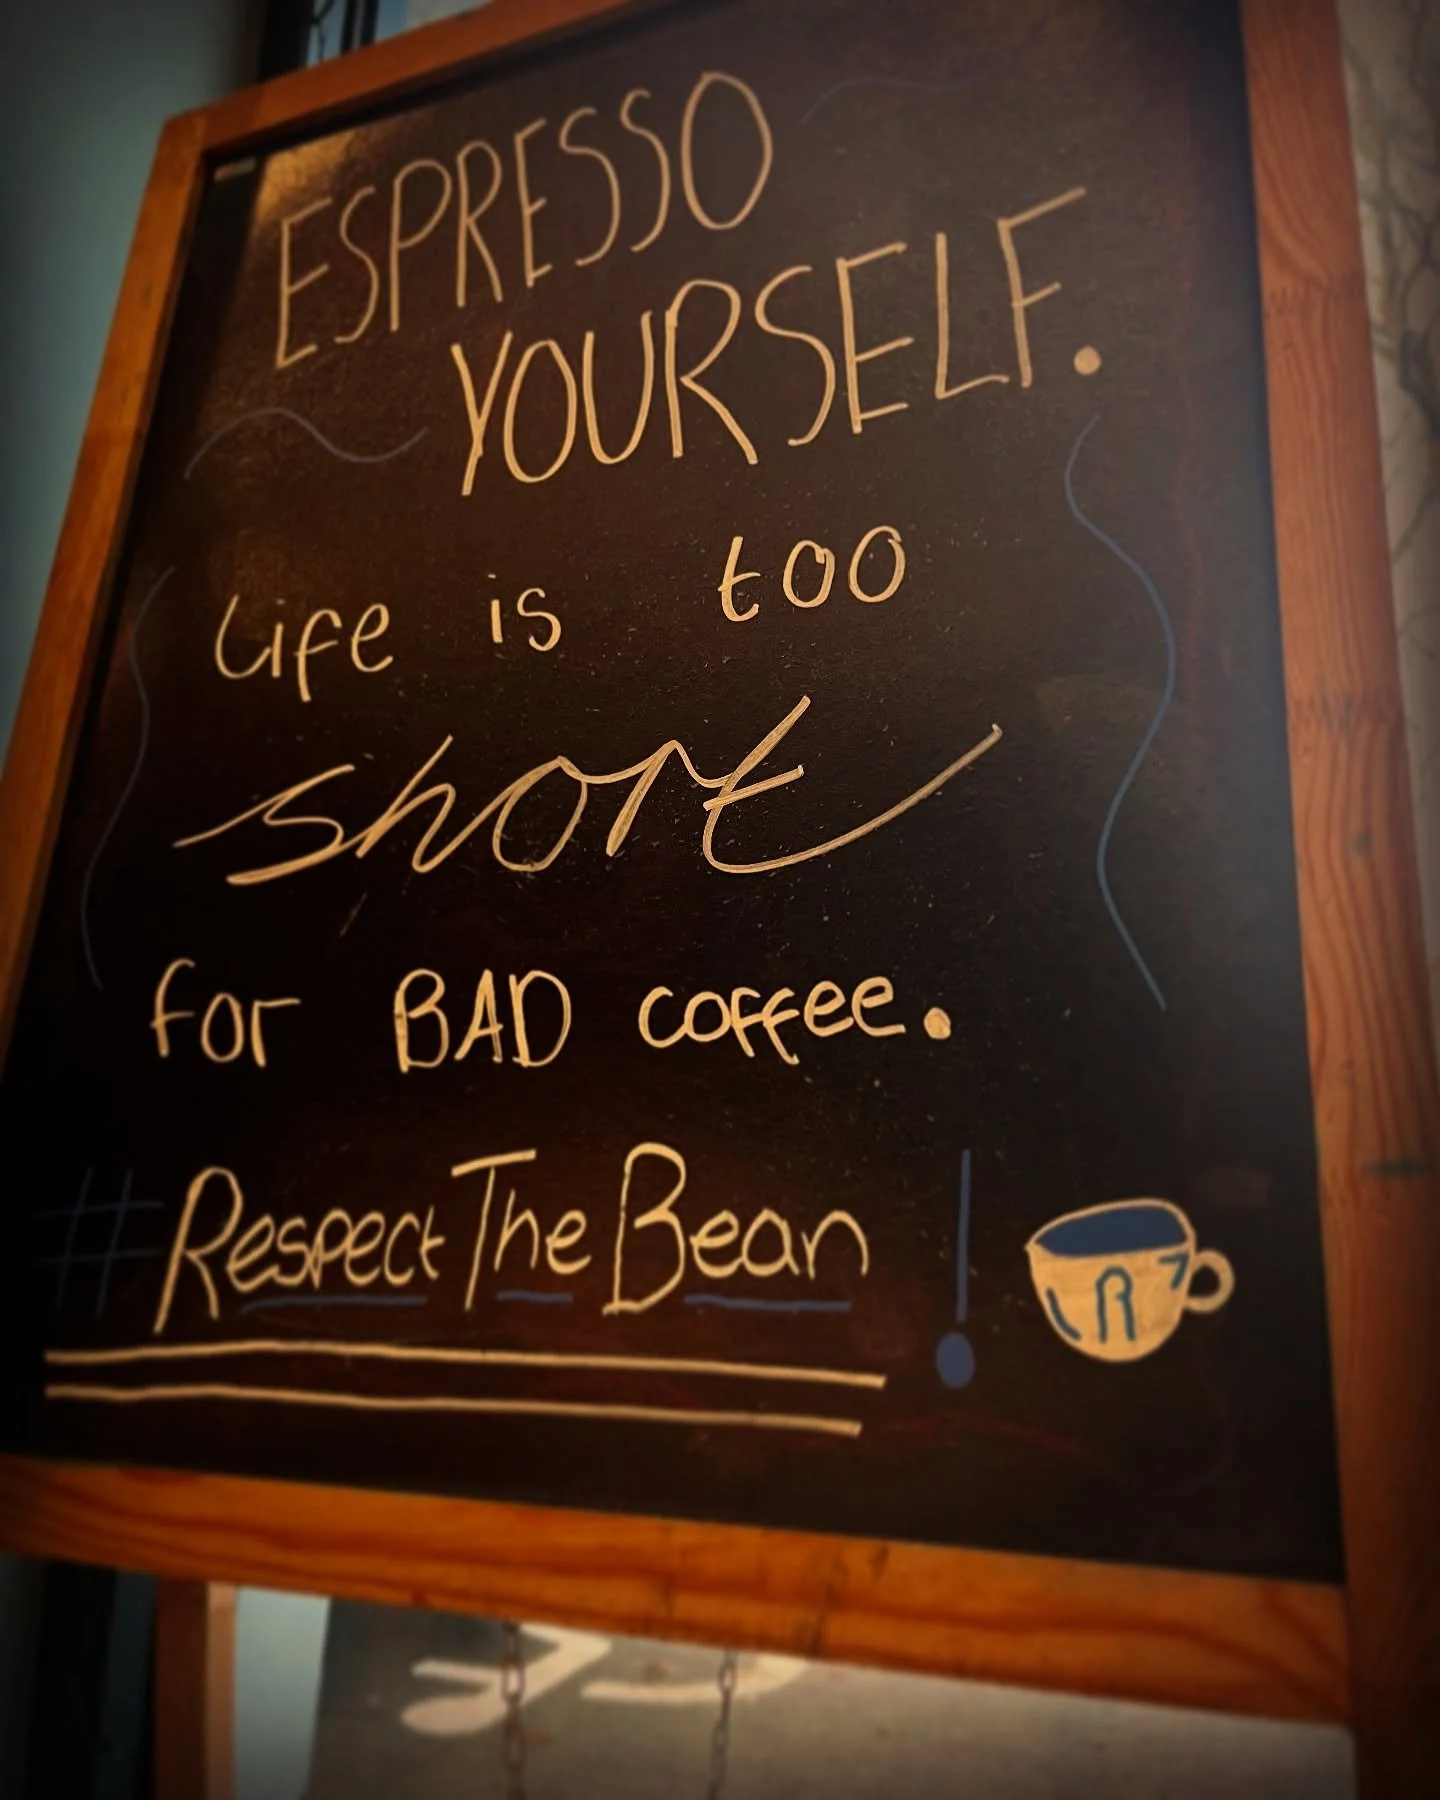 ESPRESSO
YOURSELF.
Life is too
short
for BAD coffee.
#RespectTheBean!